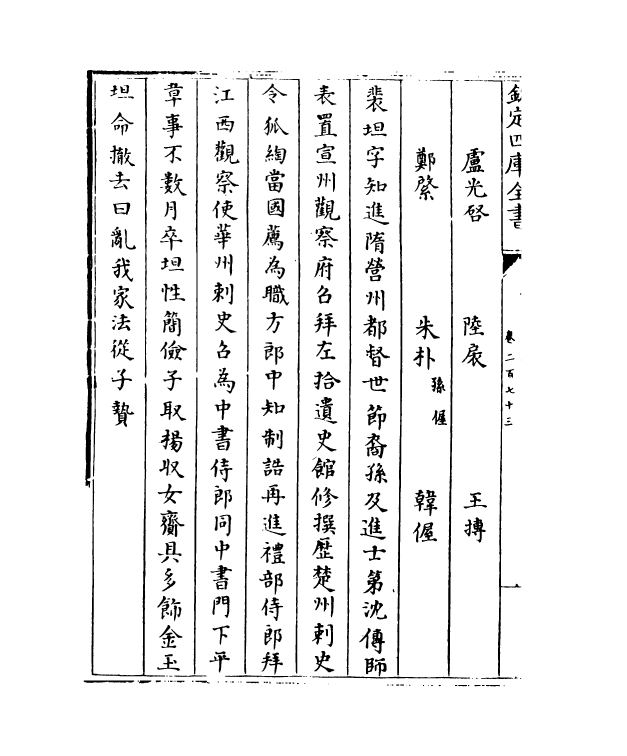 欽定四庫全書
卷二百七十三
盧光啓 陸扆 王摶
鄭綮 朱朴 孫偓 韓偓
裴坦字知進隋營州都督世節裔孫及進士第沈傳師
表置宣州觀察府召拜左拾遺史館修撰歴楚州刺史
令狐綯當國薦為職方郎中知制誥再進禮部侍郎拜
江西觀察使華州刺史召為中書侍郎同中書門下平
章事不數月卒坦性簡儉子取楊收女齎具多飾金玉
坦命撤去曰亂我家法從子贄